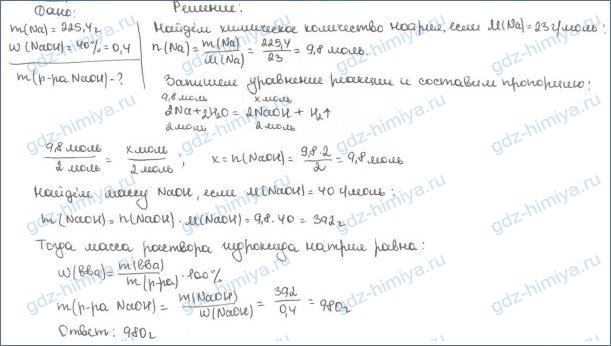 Дано:
m(Na) = 225,4г
w(NaOH) = 40% = 0,4
m(р-ра NaOH) - ?
Решение:
Найдём химическое количество натрия, если M(Na) = 23 г/моль:
n(Na) = m(Na)/M(Na) = 225,4/23 = 9,8 моль.
Запишем уравнение реакции и составим пропорцию:
9,8 моль x моль
2Na + 2H₂O = 2NaOH + H₂↑
2 моль 2 моль
9,8 моль/2 моль = x моль/2 моль ; x = n(NaOH) = 9,8·2/2 = 9,8 моль
Найдём массу NaOH, если M(NaOH) = 40 г/моль:
m(NaOH) = n(NaOH) · M(NaOH) = 9,8 · 40 = 392г
Тогда масса раствора гидроксида натрия равна:
w(вва) = m(вва)/m(р-ра) · 100%
m(р-ра NaOH) = m(NaOH)/w(NaOH) = 392/0,4 = 980г
Ответ: 980г
gdz-himiya.ru